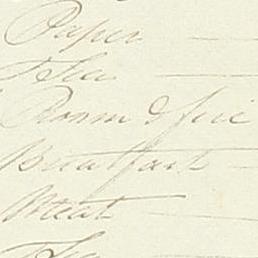 Paper
Tea
Room & fire
Breakfast
Meat
Tea